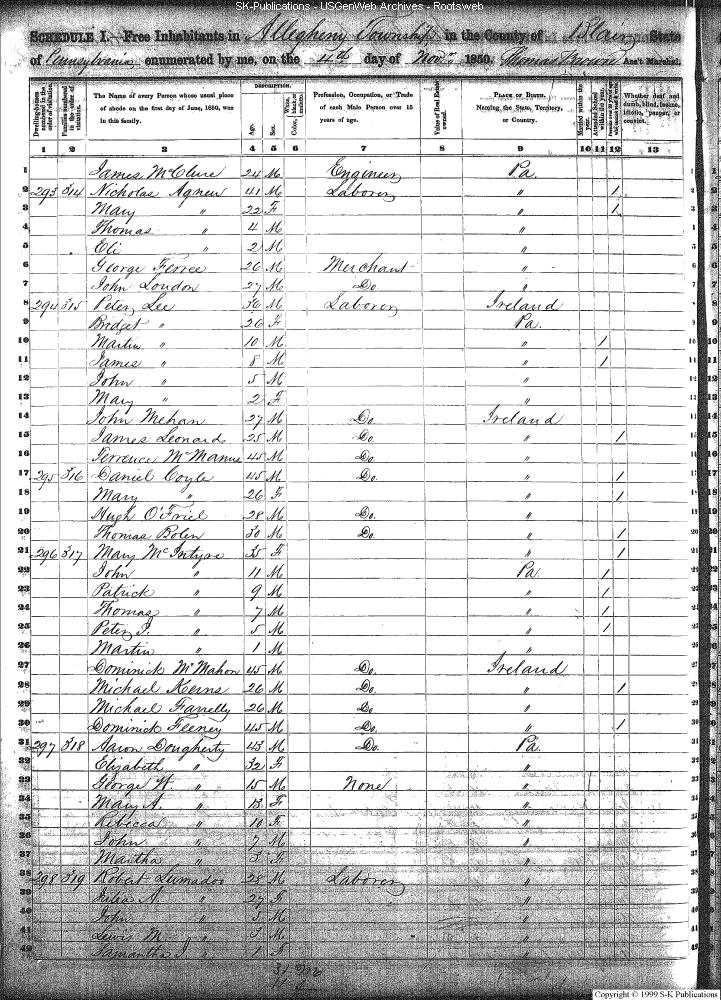 SK-Publications - USGenWeb Archives - Rootsweb
SCHEDULE I.—Free Inhabitants in Allegheny Township in the County of Blair State
of Pennsylvania, enumerated by me, on the 4th day of Novr 1850. Thomas Brown Ass't Marshal.
Dwelling-houses numbered in the order of visitation.
Families numbered in the order of visitation.
The Name of every Person whose usual place of abode on the first day of June, 1850, was in this family.
DESCRIPTION.
Age.
Sex.
Color, White, black, or mulatto.
Profession, Occupation, or Trade of each Male Person over 15 years of age.
Value of Real Estate owned.
PLACE OF BIRTH. Naming the State, Territory, or Country.
Married within the year.
Attended School within the year.
Whether deaf and dumb, blind, insane, idiotic, pauper, or convict.
1 2 3 4 5 6 7 8 9 10 11 12 13
1 James McClure 24 M Engineer Pa.
2 293 314 Nicholas Agnew 41 M Laborer " 1 2
3 Mary " 22 F " 1 3
4 Thomas " 4 M " 4
5 Eli " 2 M " 5
6 George Ferree 26 M Merchant " 6
7 John Loudon 27 M Do " 7
8 294 315 Peter Lee 36 M Laborer Ireland 8
9 Bridget " 26 F Pa. 9
10 Martin " 10 M " 1 10
11 James " 8 M " 1 11
12 John " 5 M " 12
13 Mary " 2 F " 13
14 John Mehan 27 M Do. Ireland 14
15 James Leonard 25 M Do. " 1 15
16 Terrence McManus 45 M Do. " 16
17 295 316 Daniel Coyle 45 M Do. " 1 17
18 Mary " 26 F " 1 18
19 Hugh O'Friel 28 M Do. " 19
20 Thomas Bolen 30 M Do. " 1 20
21 296 317 Mary McIntyre 35 F " 1 21
22 John " 11 M Pa. 1 22
23 Patrick " 9 M " 1 23
24 Thomas " 7 M " 1 24
25 Peter J. " 5 M " 1 25
26 Martin " 1 M " 26
27 Dominick McMahon 45 M Do. Ireland 27
28 Michael Kerns 26 M Do. " 1 28
29 Michael Farrelly 26 M Do " 29
30 Dominick Feeney 45 M Do. " 1 30
31 297 318 Aaron Dougherty 43 M Do. Pa. 31
32 Elizabeth " 32 F " 32
33 George W. " 15 M None " 33
34 Mary A. " 13 F " 34
35 Rebecca " 10 F " 35
36 John " 7 M " 36
37 Martha " 3 F " 37
38 298 319 Robert Lumadoo 28 M Laborer " 38
39 Julia A. " 27 F " 39
40 John " 5 M " 40
41 Lewis M. " 3 M " 41
42 Samantha J. " 1 F " 42
31 m
11 f
Copyright © 1999 S-K Publications